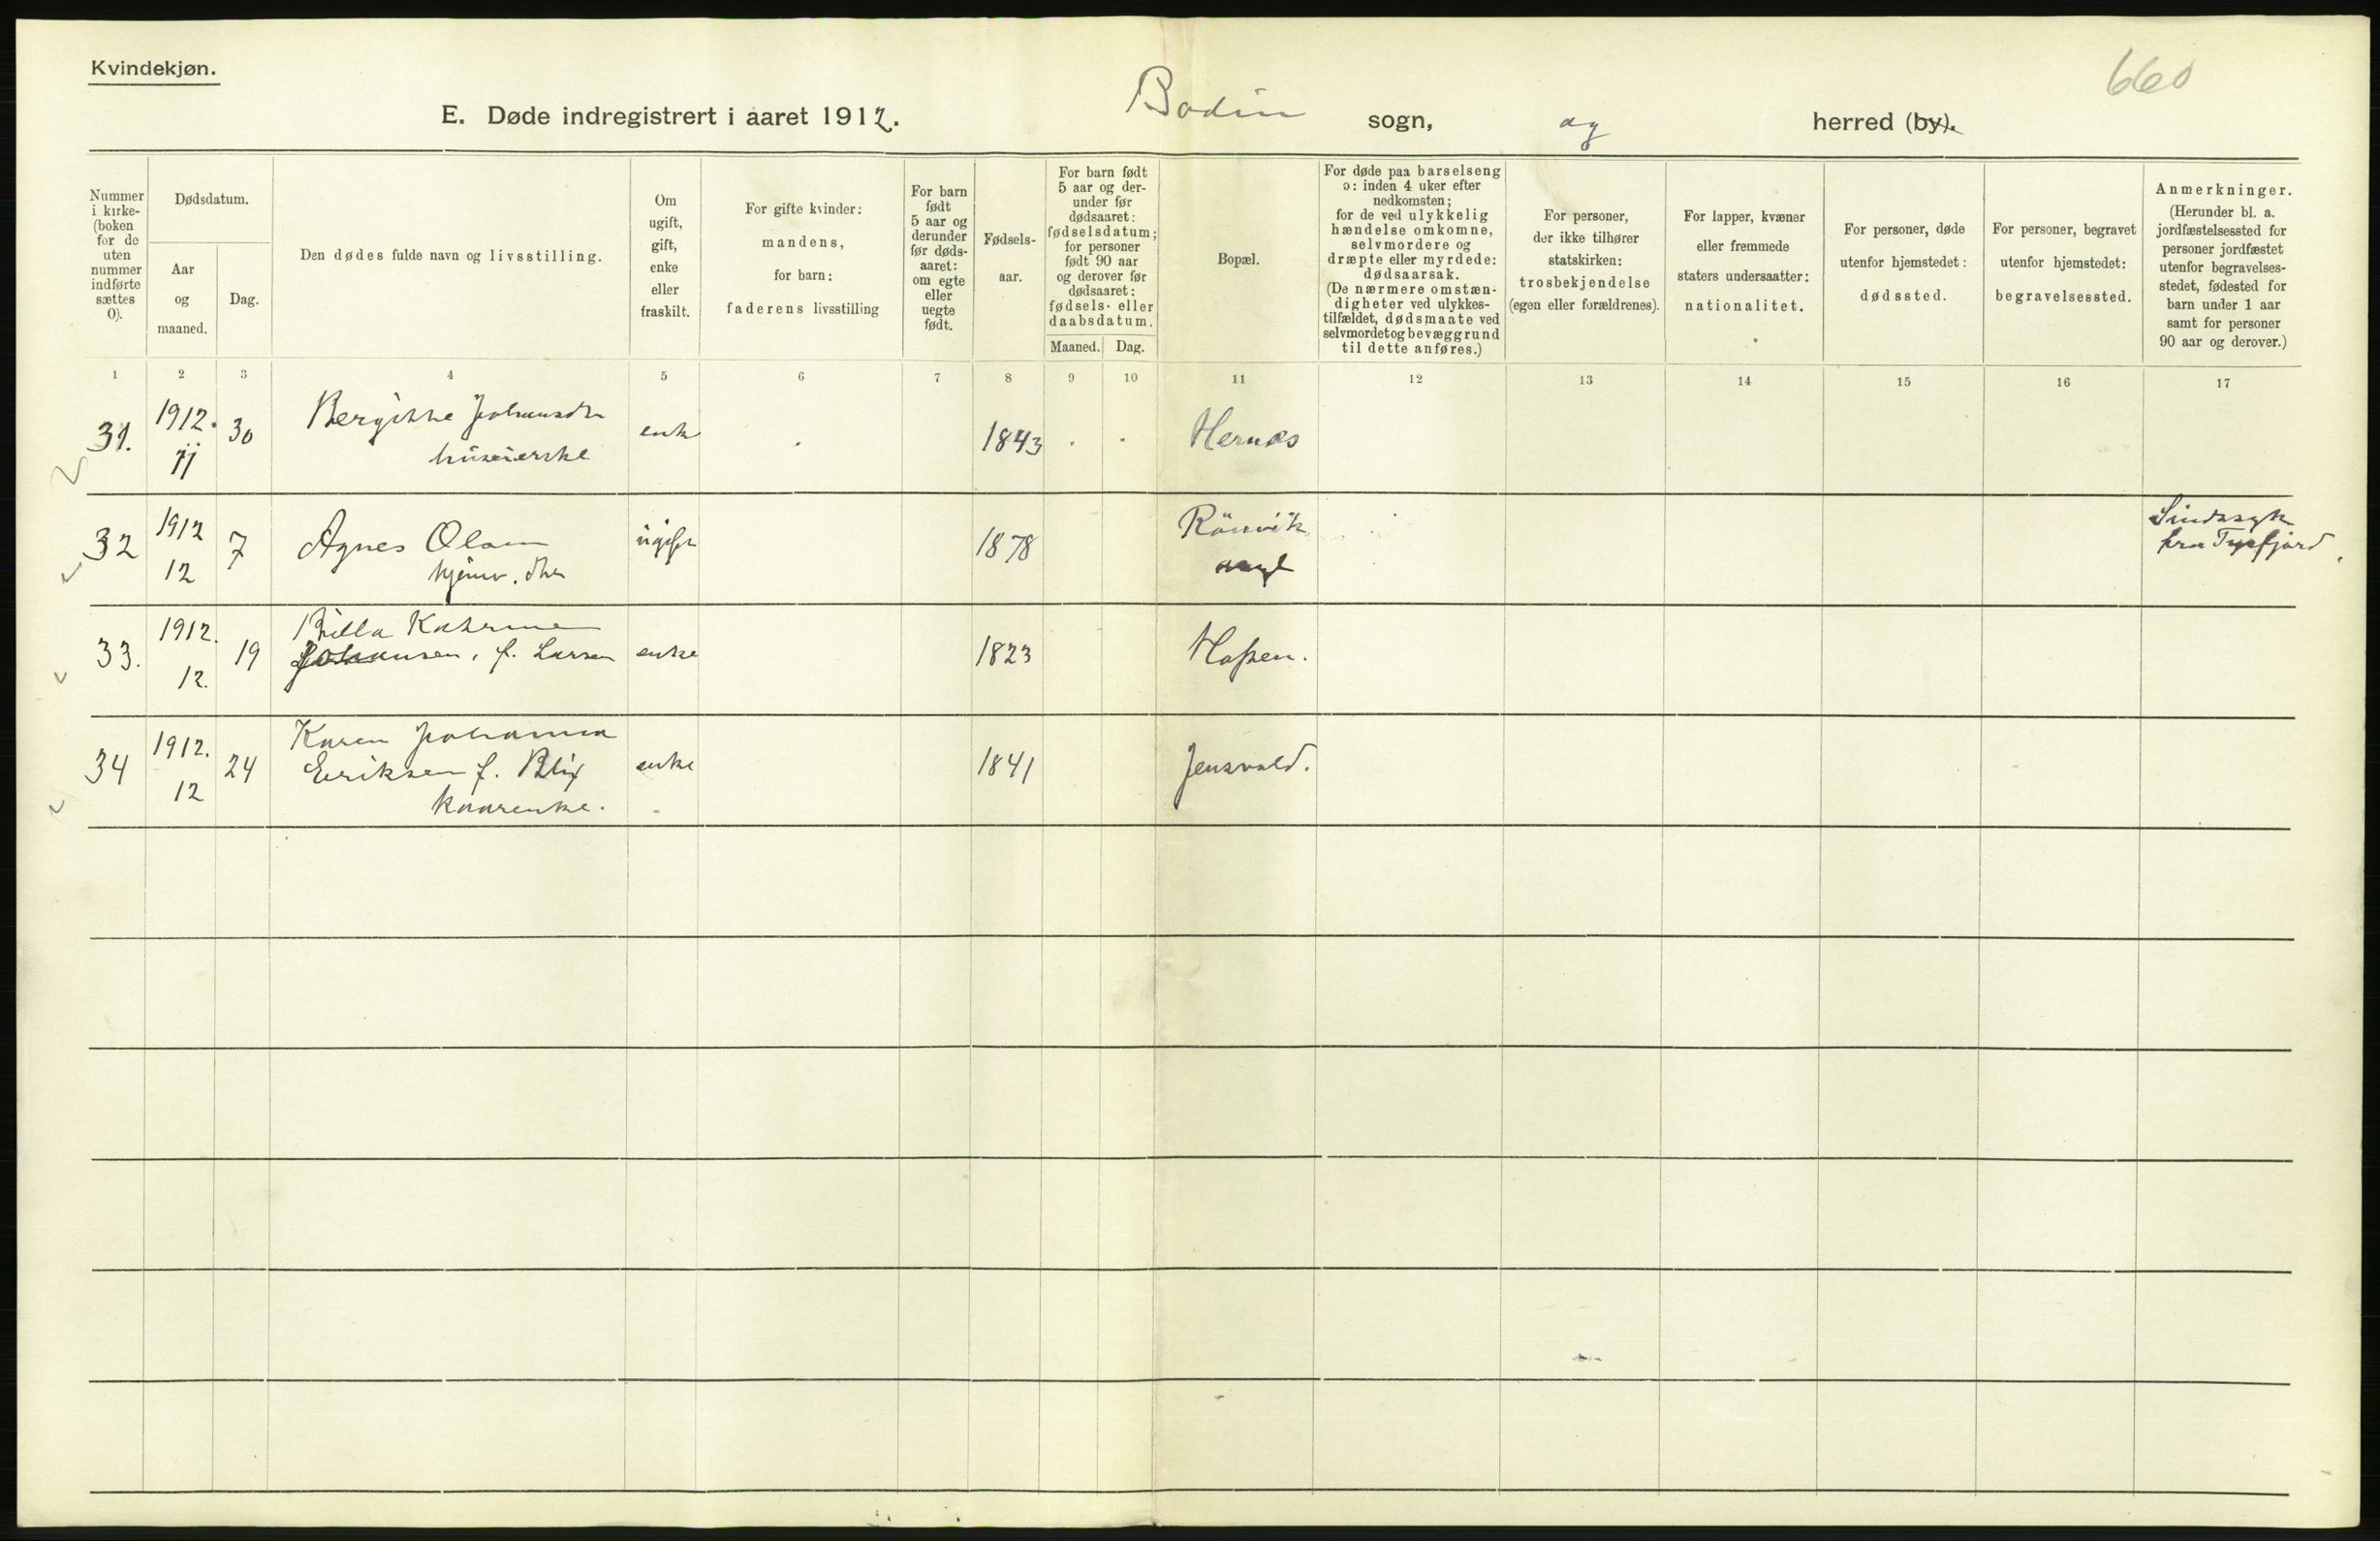 Kvindekjøn.
660
E. Døde indregistrert i aaret 1912.
Bodin sogn, og herred (by).
Nummer i kirke-(boken for de uten nummer indførte sættes 0).
Dødsdatum.
Aar og maaned.
Dag.
Den dødes fulde navn og livsstilling.
Om ugift, gift, enke eller fraskilt.
For gifte kvinder: mandens, for barn: faderens livsstilling
For barn født 5 aar og derunder før døds-aaret: om egte eller uegte født.
Fødsels-aar.
For barn født 5 aar og der-under før dødsaaret: fødselsdatum; for personer født 90 aar og derover før dødsaaret: fødsels- eller daabsdatum.
Maaned. Dag.
Bopæl.
For døde paa barselseng ɔ: inden 4 uker efter nedkomsten; for de ved ulykkelig hændelse omkomne, selvmordere og dræpte eller myrdede: dødsaarsak. (De nærmere omstæn-digheter ved ulykkes-tilfældet, dødsmaate ved selvmordet og bevæggrund til dette anføres.)
For personer, der ikke tilhører statskirken: trosbekjendelse (egen eller forældrenes).
For lapper, kvæner eller fremmede staters undersaatter: nationalitet.
For personer, døde utenfor hjemstedet: dødssted.
For personer, begravet utenfor hjemstedet: begravelsessted.
Anmerkninger. (Herunder bl. a. jordfæstelsessted for personer jordfæstet utenfor begravelses-stedet, fødested for barn under 1 aar samt for personer 90 aar og derover.)
1 2 3 4 5 6 7 8 9 10 11 12 13 14 15 16 17
31. 1912. 11 30 Bergitte huseierske enke 1843 Hernes
32 1912 12 7 Agnes Olsen hjemv. dtr ugift 1878 Rönvik asyl Sindssyk fra Tysfjord.
33. 1912. 12. 19 Katrine Johansen, f. Larsen enke 1823 Hopen.
34 1912. 12 24 Karen Johanna Eriksen f. Blix kaarenke. enke 1841 Jensvold.